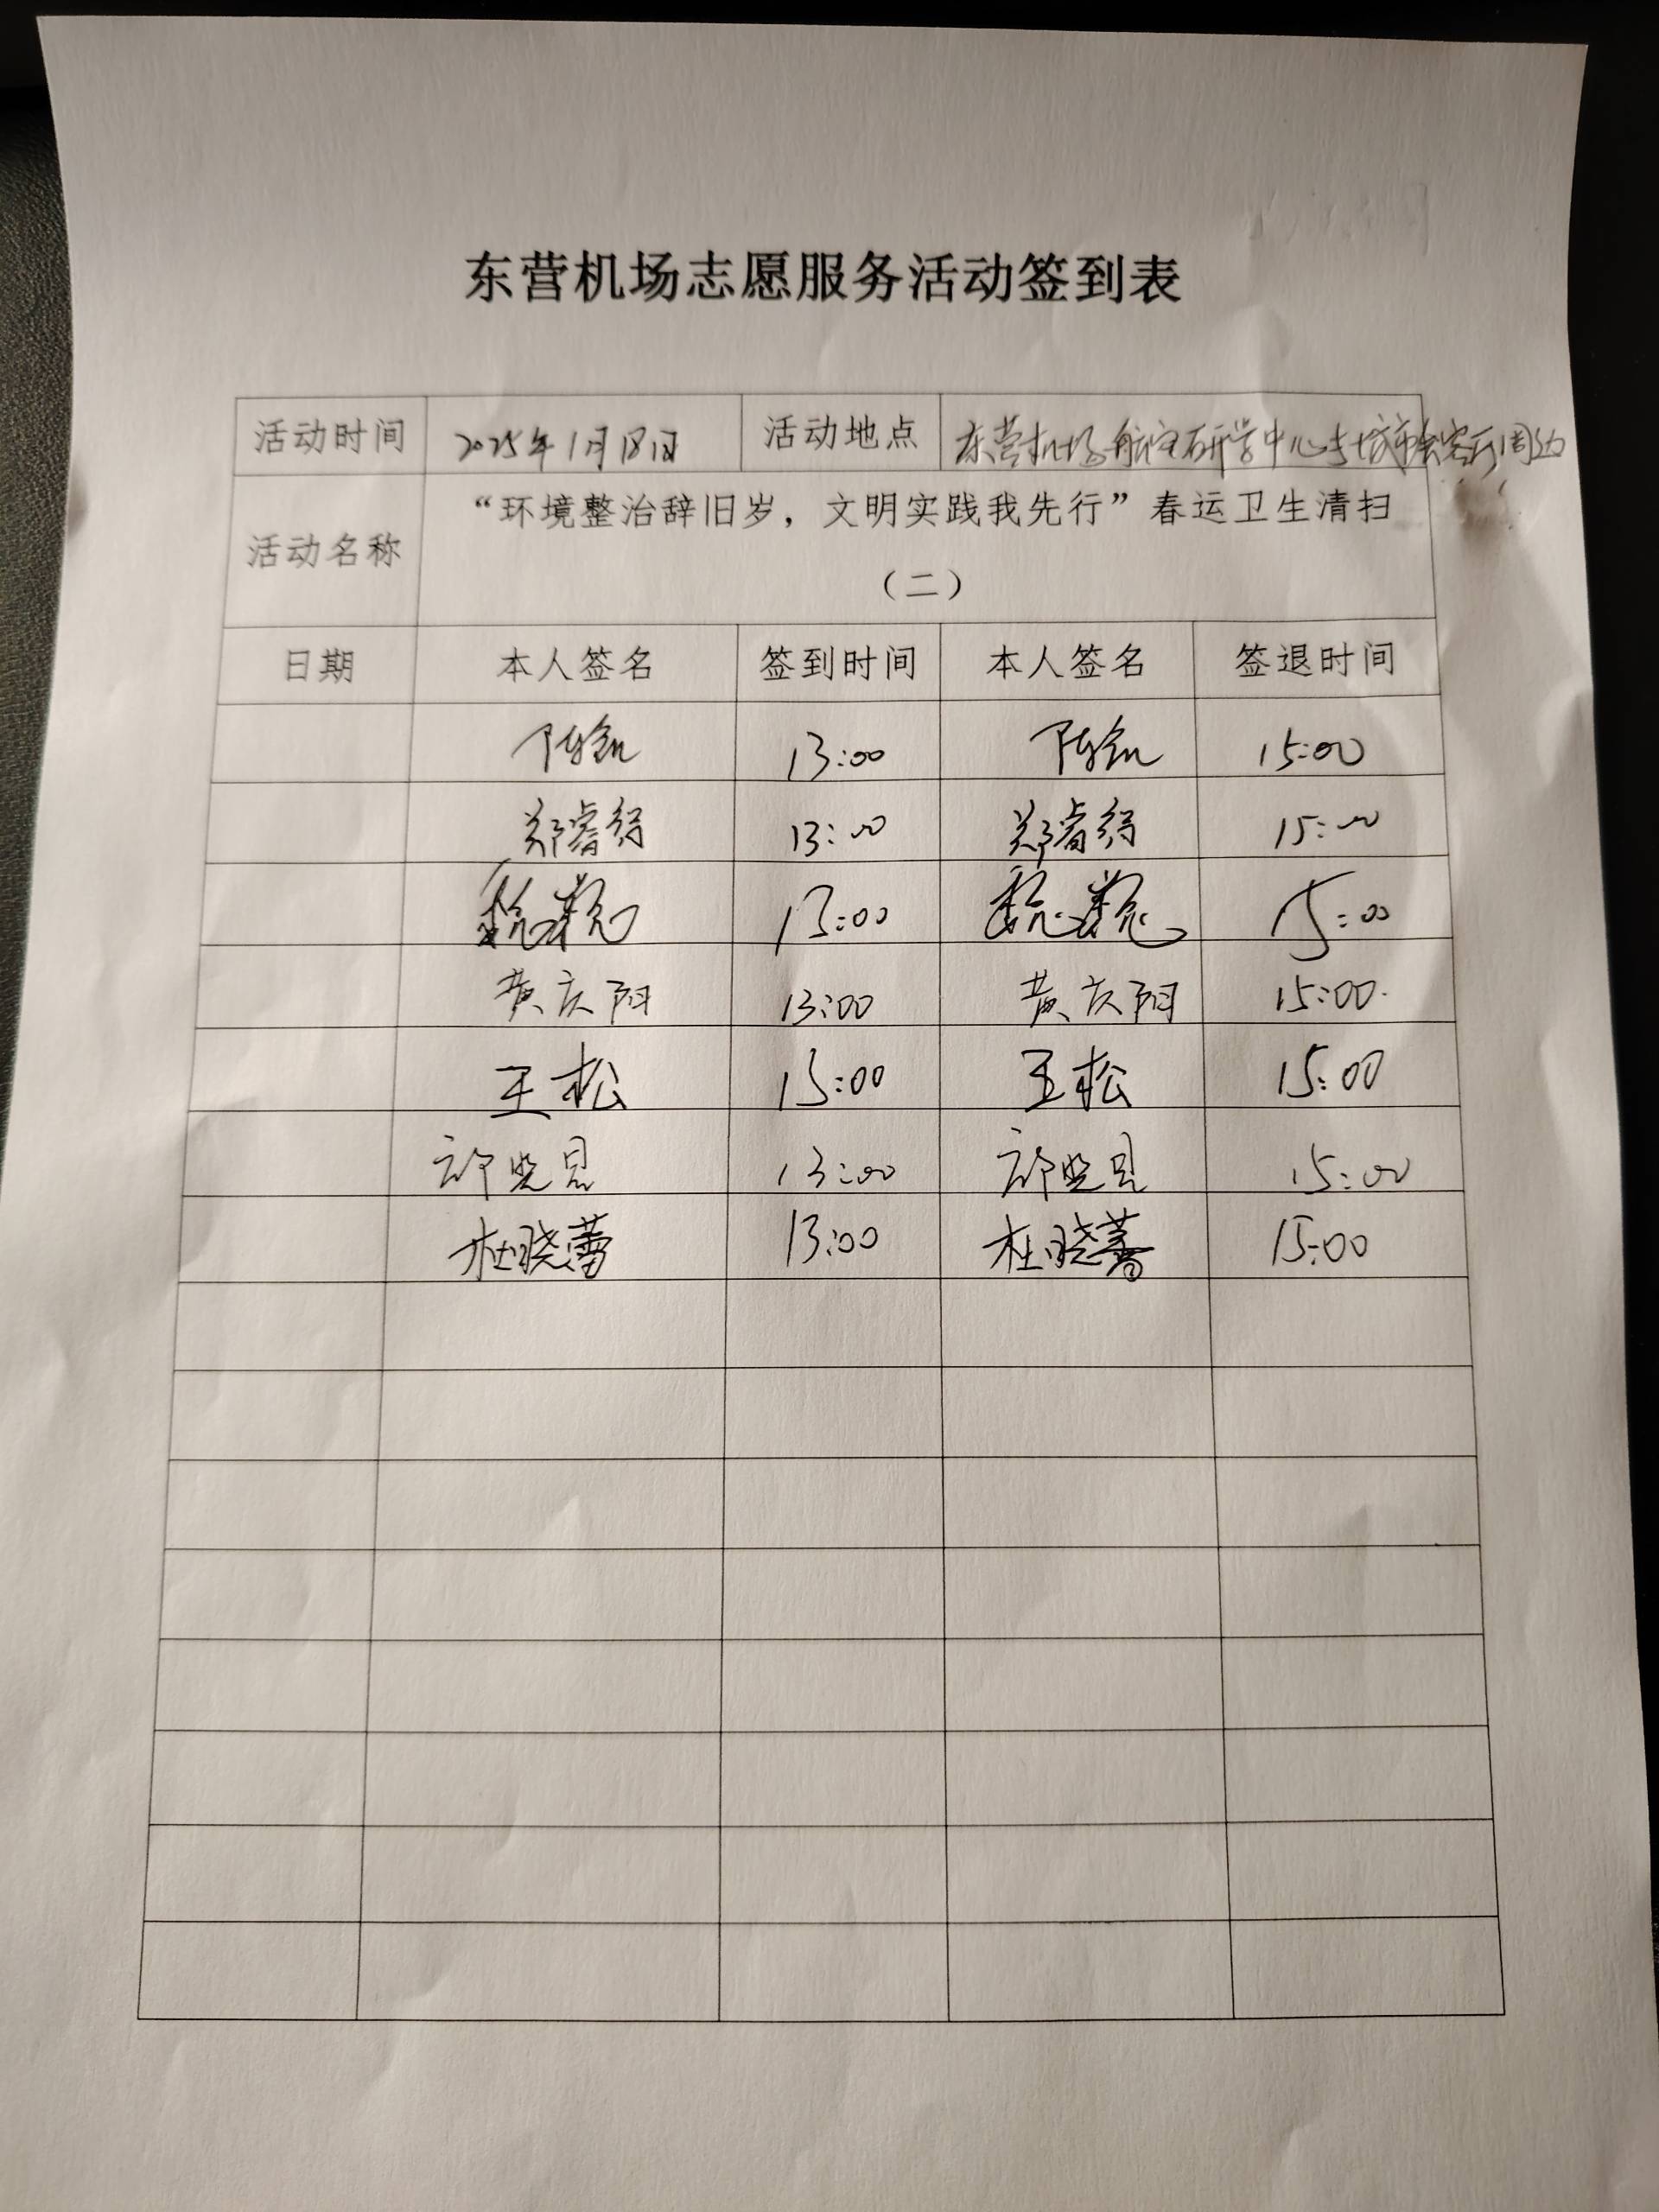 东营机场志愿服务活动签到表
活动时间 2025年1月18日 活动地点 东营机场航空研学中心与城市会客厅周边
“环境整治辞旧岁，文明实践我先行”春运卫生清扫
活动名称
（二）
日期 本人签名 签到时间 本人签名 签退时间
13:00 15:00
郑睿 13:00 郑睿 15:00
13:00 15:00
黄庆阳 13:00 黄庆阳 15:00
王松 15:00 王松 15:00
13:00 15:00
杜晓蕾 13:00 杜晓蕾 15:00